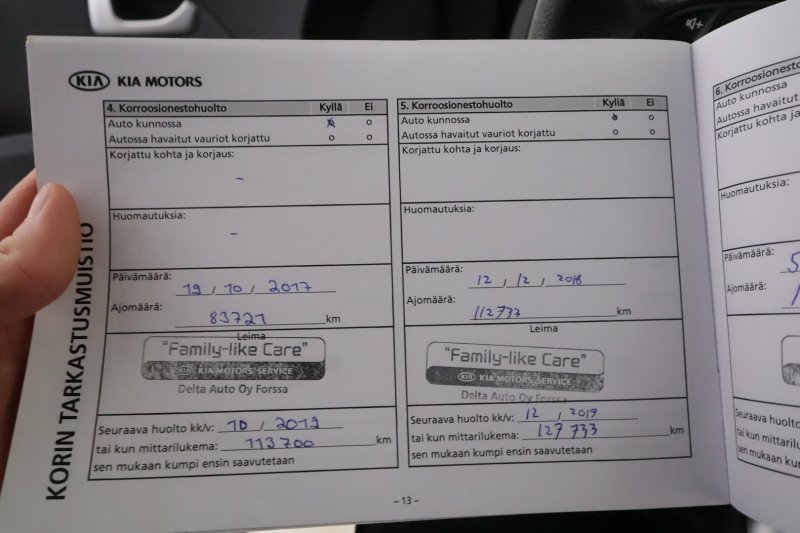 KIA KIA MOTORS
KORIN TARKASTUSMUISTIO
4. Korroosionestohuolto Kyllä Ei
Auto kunnossa
Autossa havaitut vauriot korjattu
Korjattu kohta ja korjaus:
-
Huomautuksia:
-
Päivämäärä: 19 / 10 / 2017
Ajomäärä: 83721 km
Leima
"Family-like Care"
KIA KIA MOTORS SERVICE
Delta Auto Oy Forssa
Seuraava huolto kk/v: 10 / 2019
tai kun mittarilukema: 113700 km
sen mukaan kumpi ensin saavutetaan
5. Korroosionestohuolto Kyllä Ei
Auto kunnossa
Autossa havaitut vauriot korjattu
Korjattu kohta ja korjaus:
Huomautuksia:
Päivämäärä: 12 / 12 / 2018
Ajomäärä: 112733 km
Leima
"Family-like Care"
KIA KIA MOTORS SERVICE
Delta Auto Oy Forssa
Seuraava huolto kk/v: 12 / 2019
tai kun mittarilukema: 127 733 km
sen mukaan kumpi ensin saavutetaan
– 13 –
6. Korroosionesto
Auto kunnossa
Autossa havaitut
Korjattu kohta ja
Huomautuksia:
Päivämäärä: 5
Ajomäärä: 1
Seuraava huolto
tai kun mittarilu
sen mukaan kum